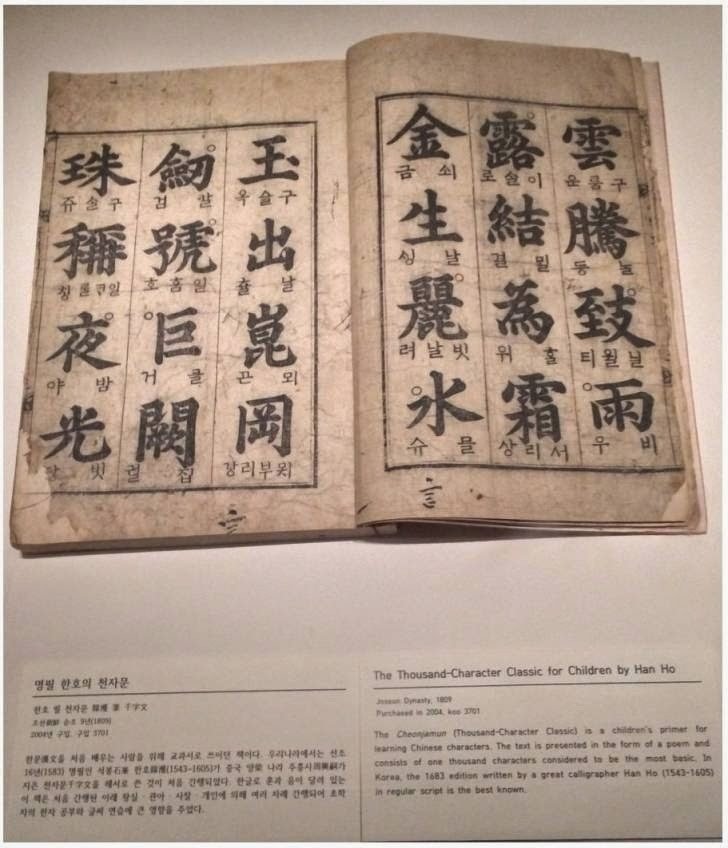 雲 구룸운 騰 등 致 닐월티 雨 비우
露 이슬로 結 결 為 홀위 霜 서리상
金 쇠금 生 날싱 麗 빗날려 水 믈슈
玉 구슬옥 出 날츌 崑 뫼곤 岡 묏부리강
劒 칼검 號 일홈호 巨 클거 闕 집궐
珠 구슬쥬 稱 칭 夜 밤야 光 빗
명필 한호의 천자문
한호 필 천자문 韓濩 筆 千字文
조선朝鮮 순조 9년(1809)
2004년 구입, 구입 3701
한문漢文을 처음 배우는 사람을 위해 교과서로 쓰이던 책이다. 우리나라에서는 선조
16년(1583) 명필인 석봉石峯 한호韓濩(1543-1605)가 중국 양梁 나라 주흥사周興嗣가
지은 천자문千字文을 해서로 쓴 것이 처음 간행되었다. 한글로 훈과 음이 달려 있는
이 책은 처음 간행된 이래 왕실·관아·사찰·개인에 의해 여러 차례 간행되어 초학
자의 한자 공부와 글씨 연습에 큰 영향을 주었다.
The Thousand-Character Classic for Children by Han Ho
Joseon Dynasty, 1809
Purchased in 2004, koo 3701
The Cheonjamun (Thousand-Character Classic) is a children's primer for
learning Chinese characters. The text is presented in the form of a poem and
consists of one thousand characters considered to be the most basic. In
Korea, the 1683 edition written by a great calligrapher Han Ho (1543-1605)
in regular script is the best known.